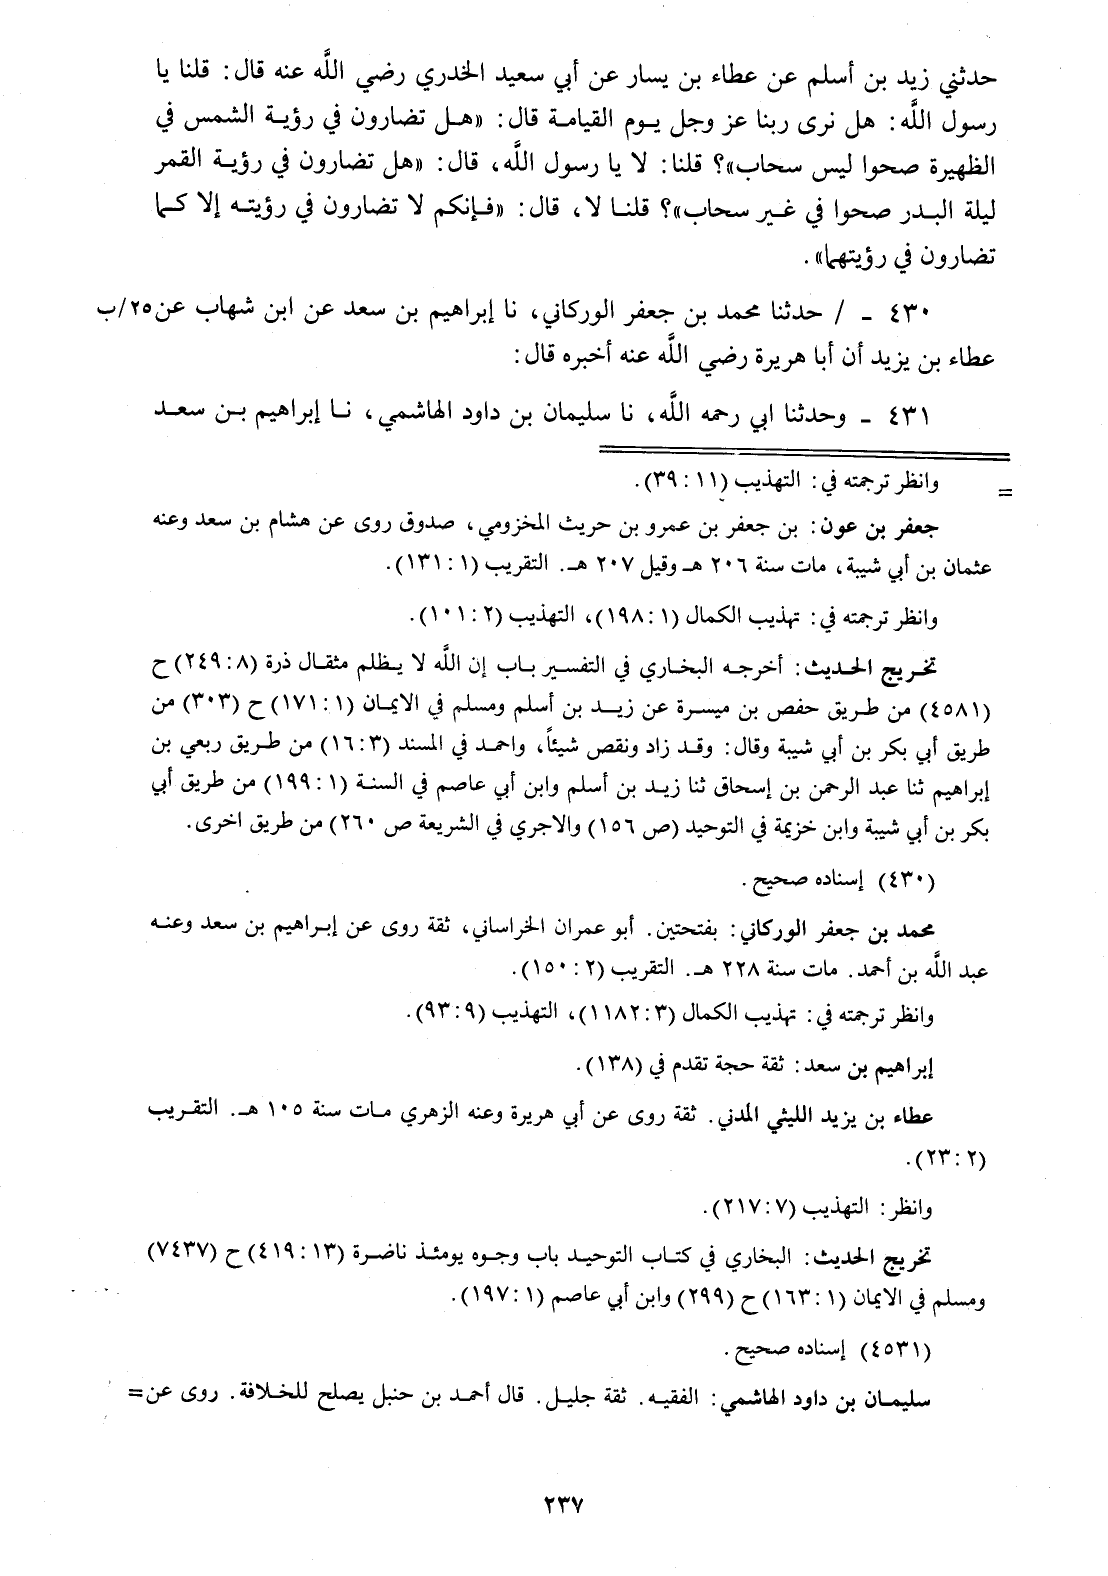 حدثني زيد بن أسلم عن عطاء بن يسار عن أبي سعيد الخدري رضي اللَّه عنه قال: قلنا يا
رسول اللَّه: هل نرى ربنا عز وجل يوم القيامة قال: «هل تضارون في رؤية الشمس في
الظهيرة صحوا ليس سحاب»؟ قلنا: لا يا رسول اللَّه، قال: «هل تضارون في رؤية القمر
ليلة البدر صحوا في غير سحاب»؟ قلنا لا، قال: «فإنكم لا تضارون في رؤيته إلا كما
تضارون في رؤيتهما».
٤٣٠ ـ / حدثنا محمد بن جعفر الوركاني، نا إبراهيم بن سعد عن ابن شهاب عن ٢٥/ب
عطاء بن يزيد أن أبا هريرة رضي اللَّه عنه أخبره قال:
٤٣١ ـ وحدثنا ابي رحمه اللَّه، نا سليمان بن داود الهاشمي، نا إبراهيم بن سعد
= وانظر ترجمته في: التهذيب (١١: ٣٩).
جعفر بن عون: بن جعفر بن عمرو بن حريث المخزومي، صدوق روى عن هشام بن سعد وعنه
عثمان بن أبي شيبة، مات سنة ٢٠٦ هـ وقيل ٢٠٧ هـ. التقريب (١: ١٣١).
وانظر ترجمته في: تهذيب الكمال (١: ١٩٨)، التهذيب (٢: ١٠١).
تخريج الحديث: أخرجه البخاري في التفسير باب إن اللَّه لا يظلم مثقال ذرة (٨: ٢٤٩) ح
(٤٥٨١) من طريق حفص بن ميسرة عن زيد بن أسلم ومسلم في الايمان (١: ١٧١) ح (٣٠٣) من
طريق أبي بكر بن أبي شيبة وقال: وقد زاد ونقص شيئاً، واحمد في المسند (٣: ١٦) من طريق ربعي بن
إبراهيم ثنا عبد الرحمن بن إسحاق ثنا زيد بن أسلم وابن أبي عاصم في السنة (١: ١٩٩) من طريق أبي
بكر بن أبي شيبة وابن خزيمة في التوحيد (ص ١٥٦) والاجري في الشريعة ص ٢٦٠) من طريق اخرى.
(٤٣٠) إسناده صحيح.
محمد بن جعفر الوركاني: بفتحتين. أبو عمران الخراساني، ثقة روى عن إبراهيم بن سعد وعنه
عبد اللَّه بن أحمد. مات سنة ٢٢٨ هـ. التقريب (٢: ١٥٠).
وانظر ترجمته في: تهذيب الكمال (٣: ١١٨٢)، التهذيب (٩: ٩٣).
إبراهيم بن سعد: ثقة حجة تقدم في (١٣٨).
عطاء بن يزيد الليثي المدني. ثقة روى عن أبي هريرة وعنه الزهري مات سنة ١٠٥ هـ. التقريب
(٢: ٢٣).
وانظر: التهذيب (٧: ٢١٧).
تخريج الحديث: البخاري في كتاب التوحيد باب وجوه يومئذ ناضرة (١٣: ٤١٩) ح (٧٤٣٧)
ومسلم في الايمان (١: ١٦٣) ح (٢٩٩) وابن أبي عاصم (١: ١٩٧).
(٤٥٣١) إسناده صحيح.
سليمان بن داود الهاشمي: الفقيه. ثقة جليل. قال أحمد بن حنبل يصلح للخلافة. روى عن=
٢٣٧